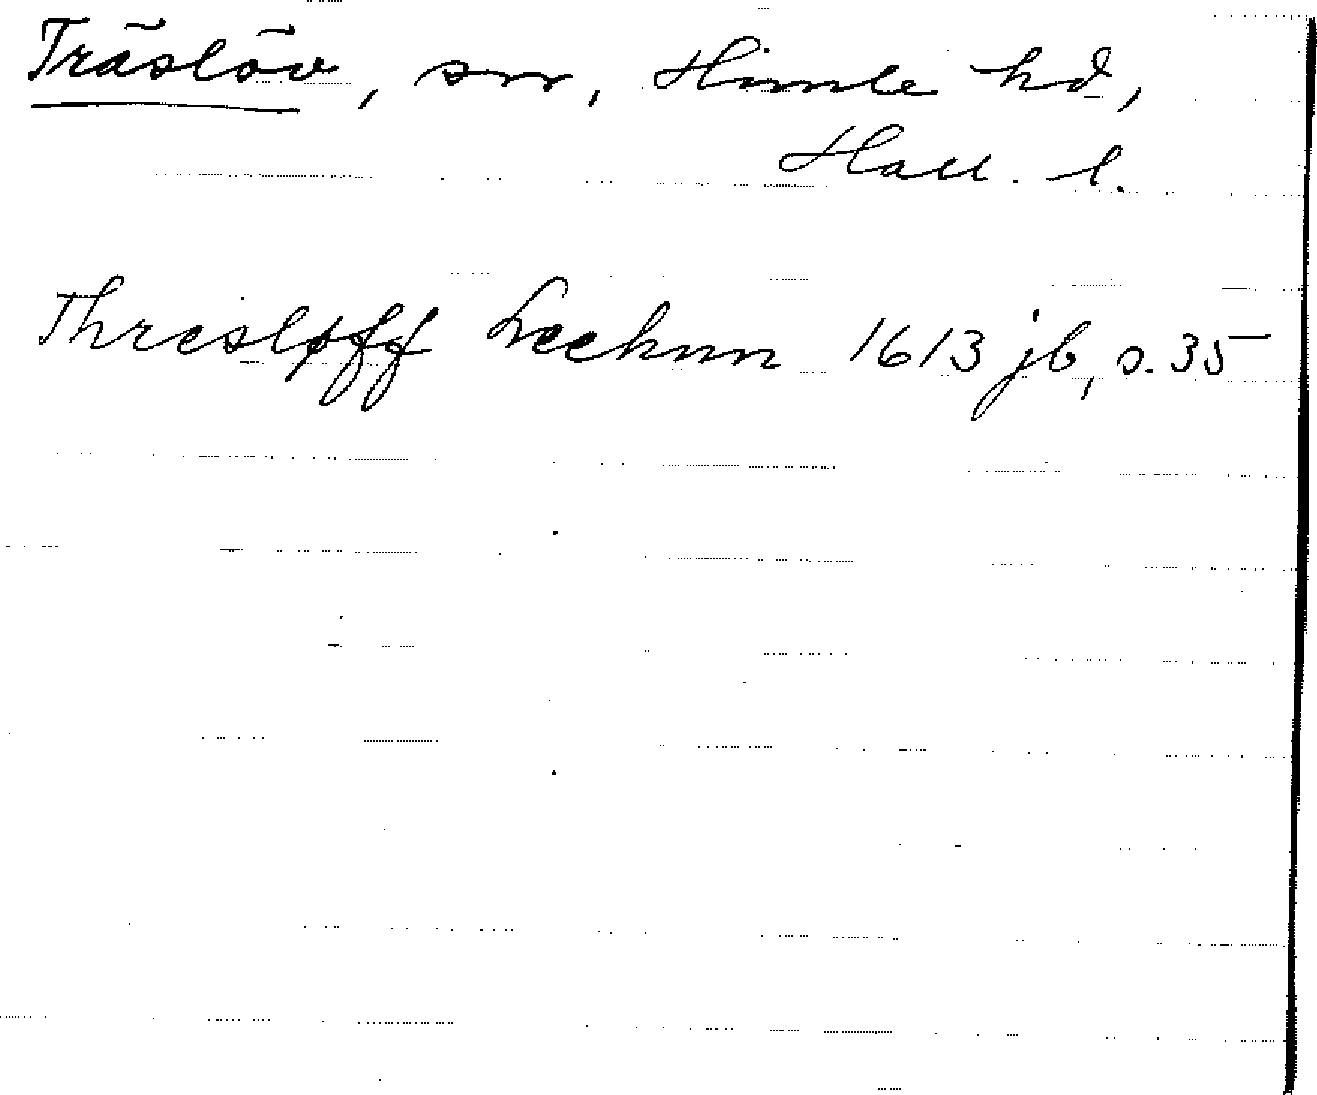 Träslöv, sn, Himle hd,
Hall. l.
Thresløff Sochnn 1613 jb, s. 35